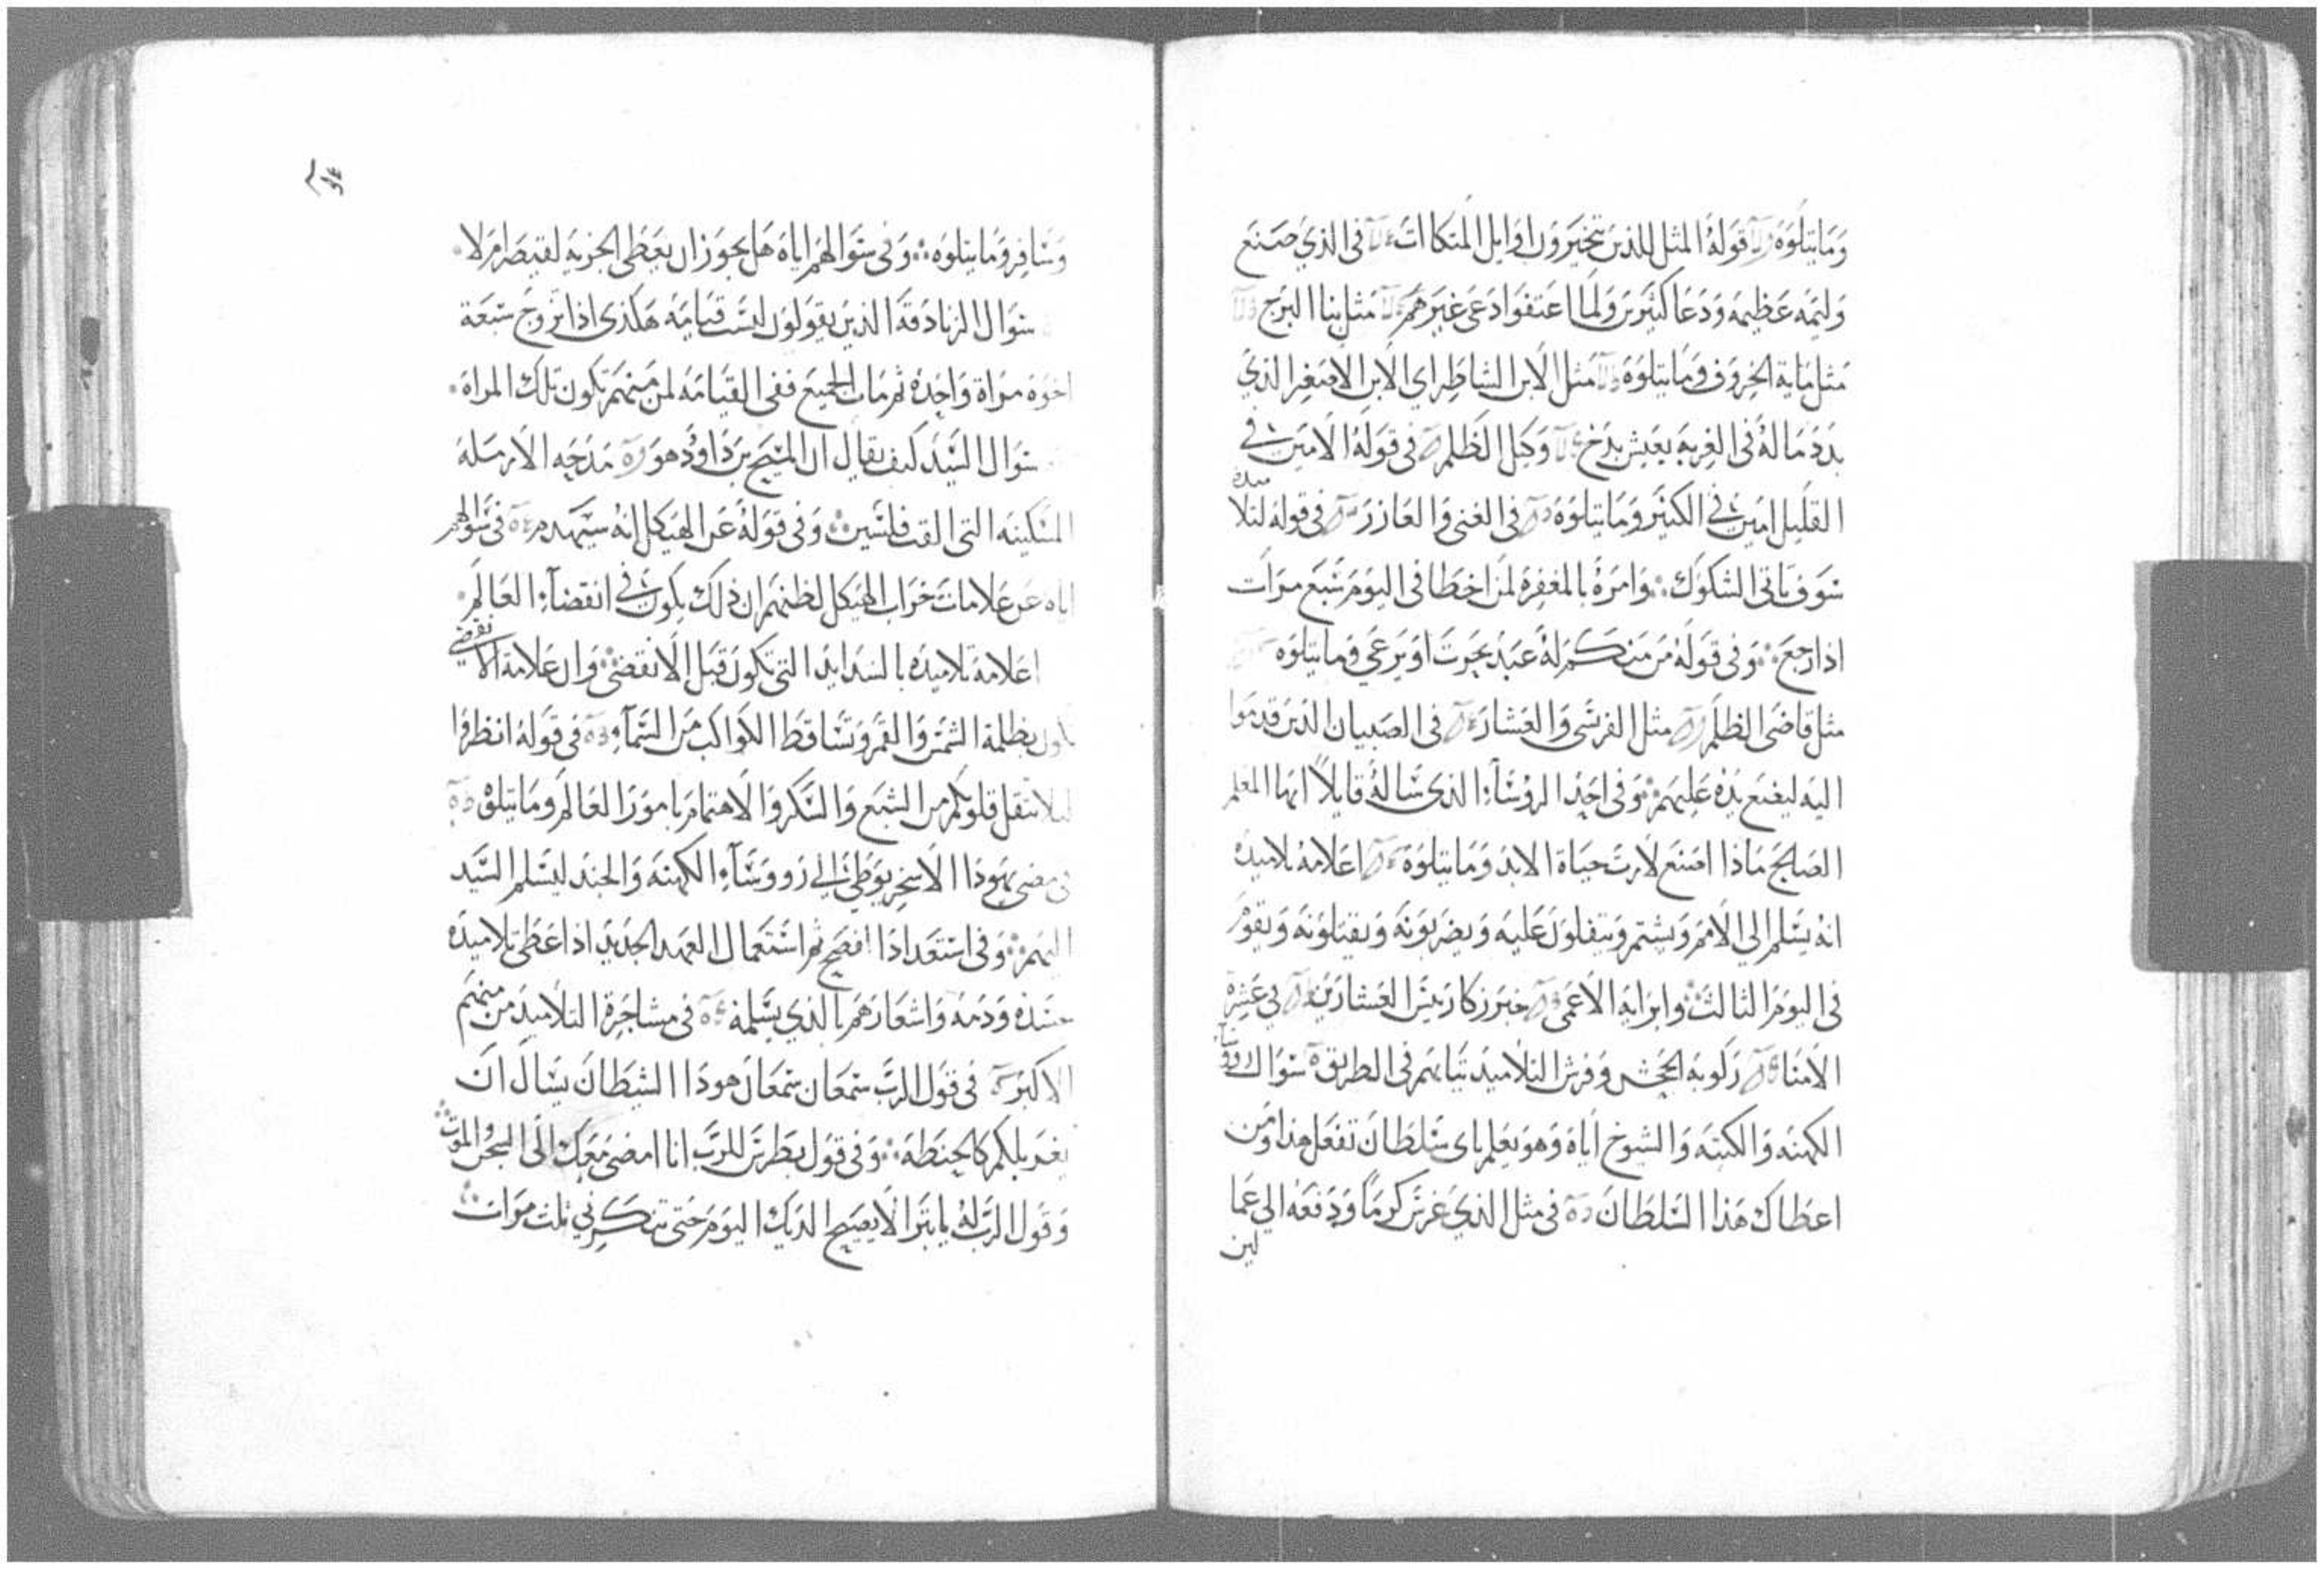 وما يتلوه قوله المثل للذين يتخيرون اوايل المتكاات في الذي صنع
وليمه عظيمه ودعا كثيرين ولما اعتفوا دعى غيرهم مثل بنا البرج
مثل ماية الخروف وما يتلوه مثل الابن الشاطر اي الابن الاصغر الذي
بدد ماله في الغربه بعيش بدخ وكيل الظلم في قوله الامين في
القليل امين في الكثير وما يتلوه في الغنى والعازر في قوله لتلاميده
سوف تاتي الشكوك وامره بالمغفره لمن اخطا في اليوم سبع مرات
اذا رجع وفي قوله من منكم له عبد يحرت او يرعي وما يتلوه
مثل قاضى الظلم مثل الفرسى والعشار في الصبيان الذين قدموا
اليه ليضع يده عليهم وفي احد الروساء الذى ساله قايلا ايها المعلم
الصالح ماذا اصنع لارت حياة الابد وما يتلوه اعلامه تلاميده
انه يسلم الي الامم ويشتم ويتفلون عليه ويضربونه ويقتلونه ويقوم
في اليوم الثالث وابرايه الاعمى خبر زكا ريس العشارين في عشرة
الامنا ركوبه الجحش وفرش التلاميد تيابهم في الطريق سوال روسا
الكهنه والكتبه والشيوخ اياه وهو يعلم باى سلطان تفعل هذا ومن
اعطاك هذا السلطان في مثل الذي غرس كرما ودفعه الي عما
لين
وسافر وما يتلوه وفى سوالهم اياه هل يجوز ان يعطى الجزيه لقيصر ام لا
سوال الزنادقه الذين يقولون ليست قيامه هكذى اذا تزوج سبعة
اخوه مراة واحده ثم مات الجميع ففى القيامه لمن منهم تكون تلك المراه
سوال السيد كيف يقال ان المسيح بن داوود هو مدحه الارمله
المسكينه التى القت فلسين وفى قوله عن الهيكل انه سيهدم في سوالهم
اياه عن علامات خراب الهيكل لظنهم ان ذلك يكون في انقضاء العالم
اعلامه تلاميده بالشدايد التى تكون قبل الانقضى وان علامة الانقضي
تكون بظلمة الشمس والقمر وتساقط الكواكب من السماء في قوله انظروا
ليلا تتقل قلوبكم من الشبع والسكر والاهتمام بامور العالم وما يتلوه
في مضى يهودا الاسخريوطي الي روساء الكهنه والجند ليسلم السيد
اليهم وفى استعداد الفصح ثم استعمال العهد الجديد اذ اعطى تلاميده
جسده ودمه واشعارهم بالذي يسلمه في مشاجرة التلاميد من منهم
الاكبر في قول الرب سمعان سمعان هودا الشيطان يسال ان
يغربلكم كالحنطه وفى قول بطرس للرب انا امضى معك الى السجن والموت
وقول الرب له يا بترا لا يصيح الديك اليوم حتى تنكرني ثلث مرات